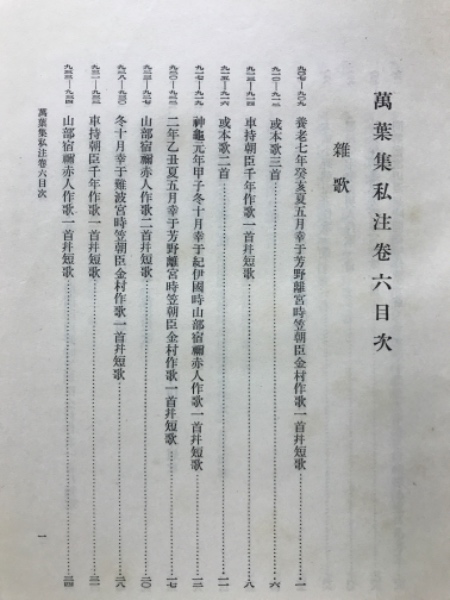 萬葉集私注卷六目次
雜歌
九〇七—九〇九 養老七年癸亥夏五月幸于芳野離宮時笠朝臣金村作歌一首幷短歌…一
九一〇—九一二 或本歌三首…六
九一三—九一四 車持朝臣千年作歌一首幷短歌…八
九一五—九一六 或本歌二首…一一
九一七—九一九 神龜元年甲子冬十月幸于紀伊國時山部宿禰赤人作歌一首幷短歌…一三
九二〇—九二二 二年乙丑夏五月幸于芳野離宮時笠朝臣金村作歌一首幷短歌…一七
九二三—九二七 山部宿禰赤人作歌二首幷短歌…二〇
九二八—九三〇 冬十月幸于難波宮時笠朝臣金村作歌一首幷短歌…二八
九三一—九三二 車持朝臣千年作歌一首幷短歌…三一
九三三—九三四 山部宿禰赤人作歌一首幷短歌…三四
萬葉集私注卷六目次
一